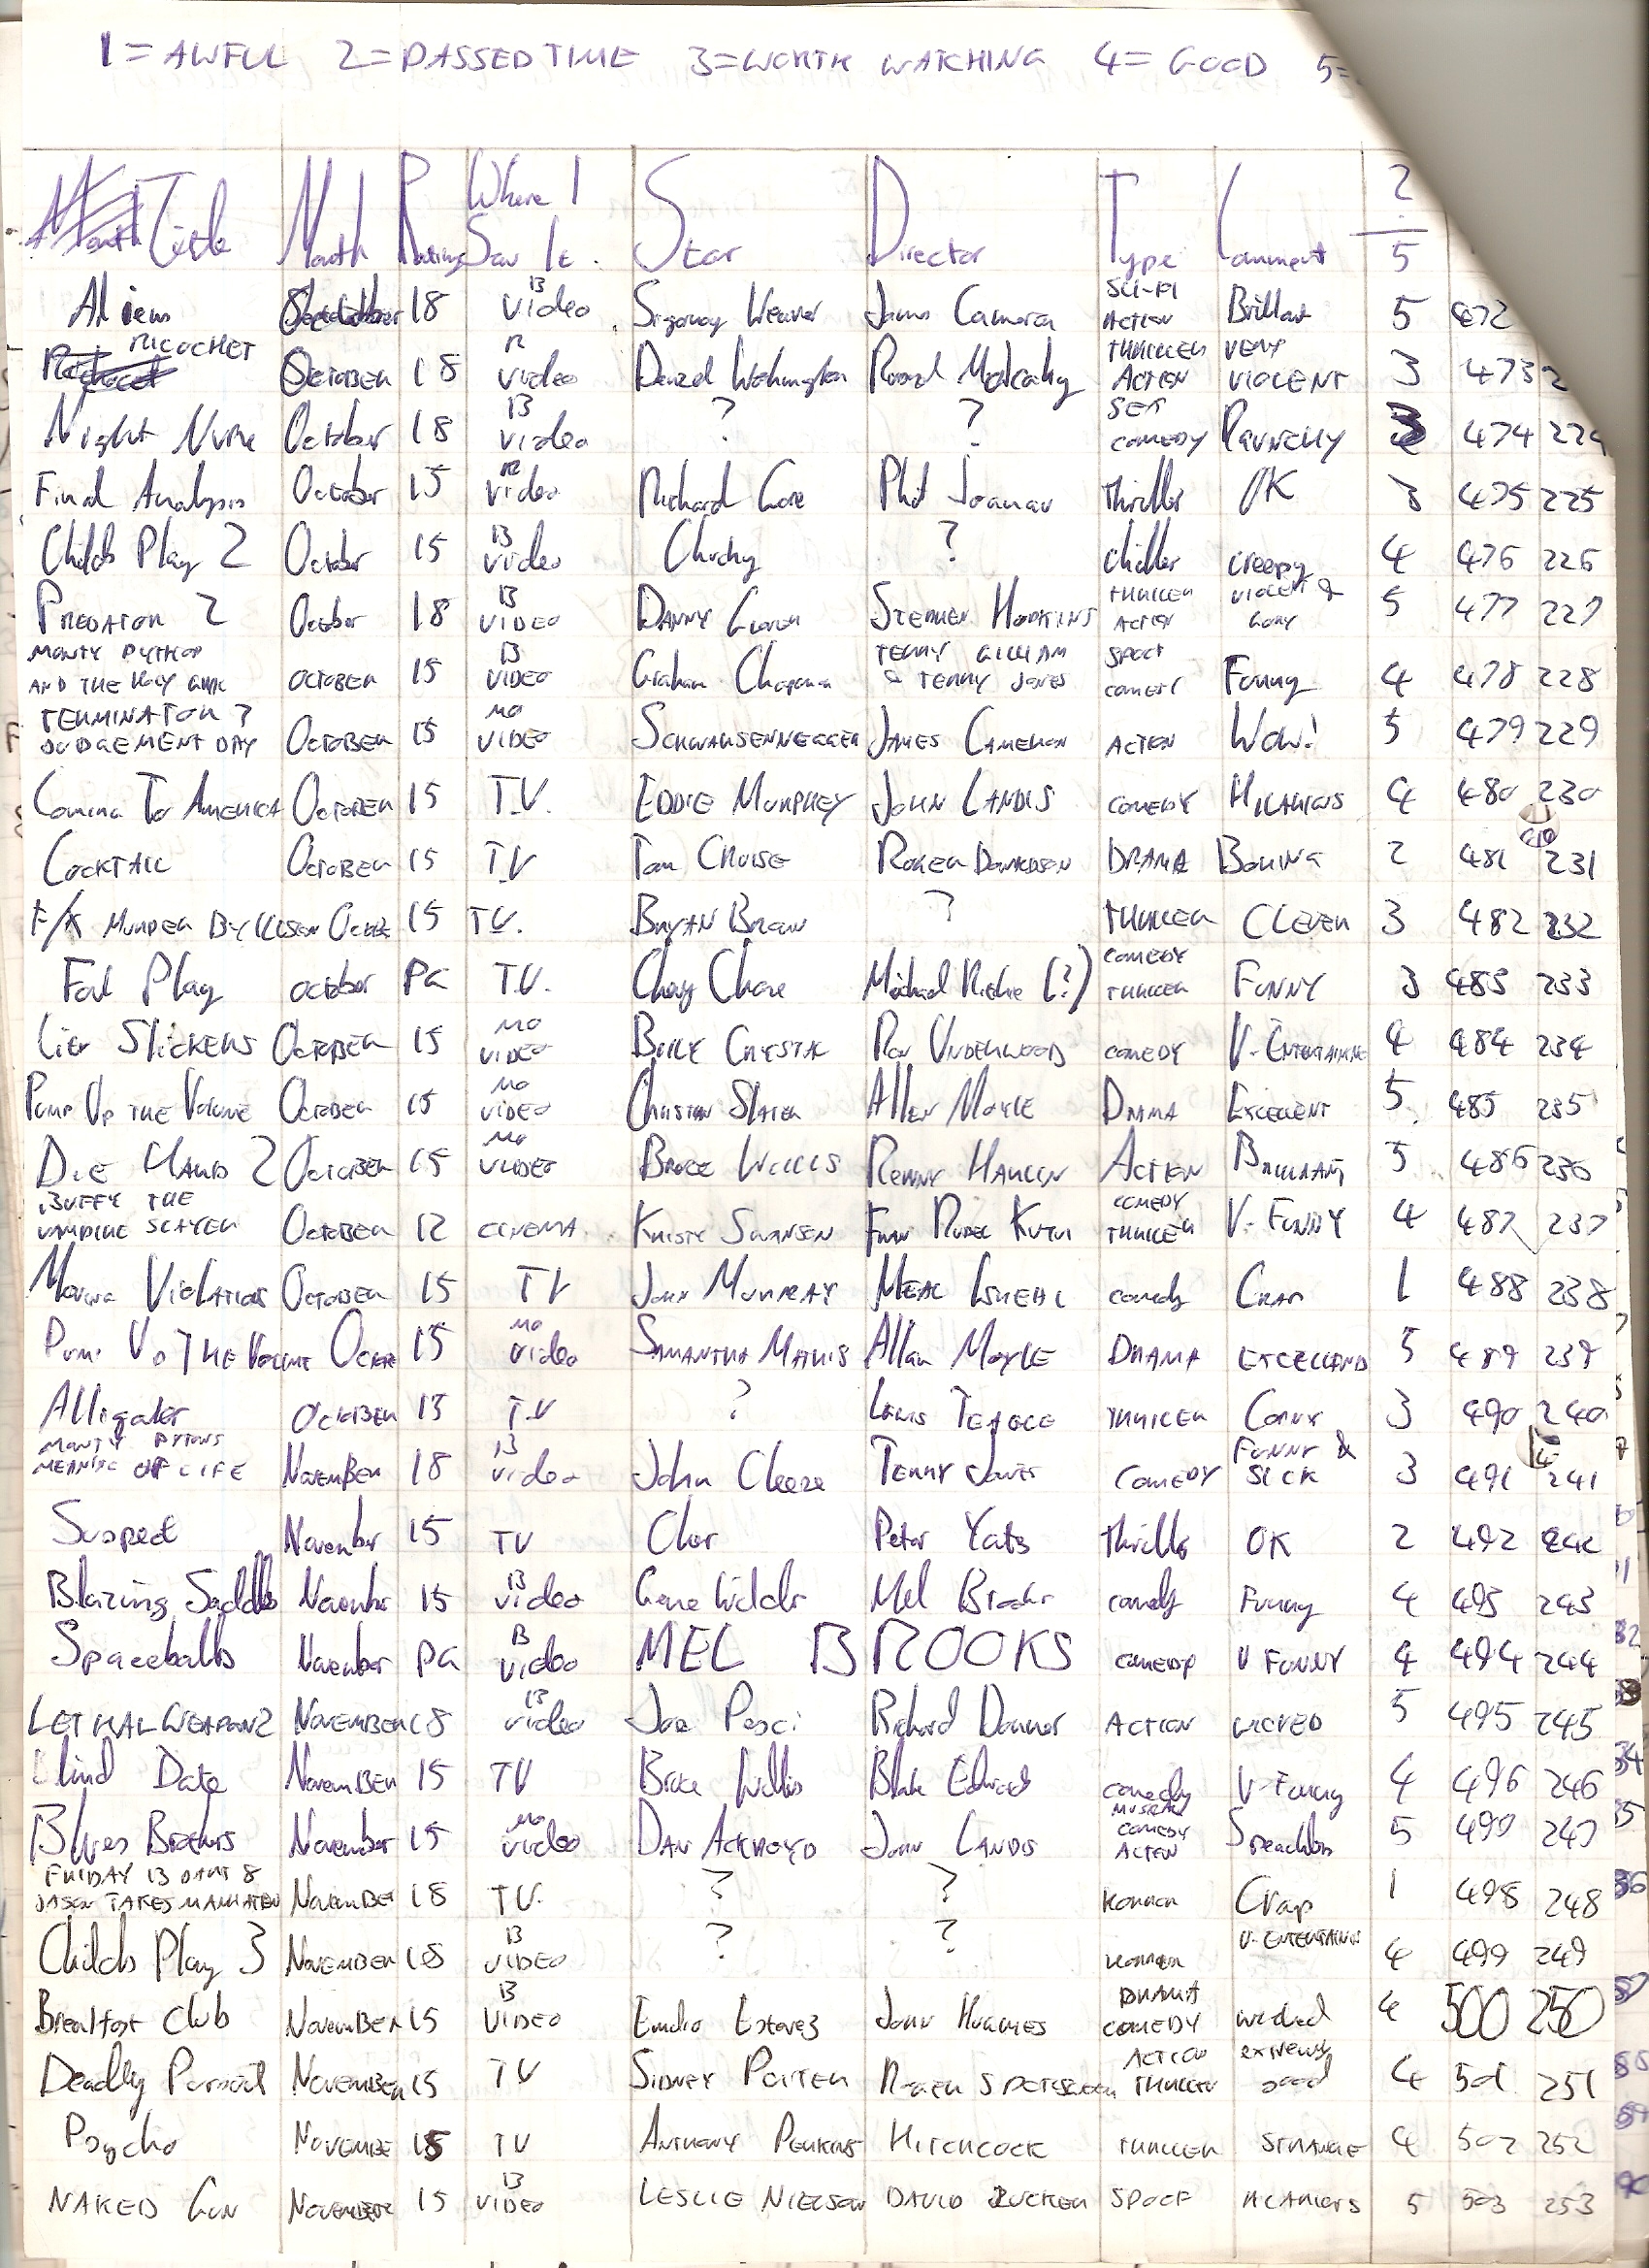 1 = AWFUL 2 = PASSED TIME 3 = WORTH WATCHING 4 = GOOD 5 =
Title Month Rating Where I Saw It. Star Director Type Comment ? / 5
Aliens 18 B Video Sigorney Weaver James Camora SCI-FI ACTION Brilliant 5 472
RICOCHET OCTOBER 18 R Video Denzel Russel THRILLER ACTION VERY VIOLENT 3 473 2
Night Nurse October 18 B Video ? ? SEX COMEDY RAUNCHY 474 224
Final Analysis October 15 R Video Richard Gere Phil Joanau Thriller OK 3 475 225
Childs Play 2 October 15 B Video Chucky ? Chiller creepy 4 476 226
PREDATOR 2 October 18 B VIDEO DANNY GLOVER STEPHEN HOPKINS THRILLER ACTION VIOLENT & GORY 5 477 227
MONTY PYTHON AND THE HOLY GRAIL OCTOBER 15 B VIDEO Graham Chapman TERRY GILLIAM & TERRY JONES SPOOF COMEDY Funny 4 478 228
TERMINATOR 2 JUDGEMENT DAY OCTOBER 15 MO VIDEO SCHWARSENNEGGER JAMES CAMERON ACTION Wow! 5 479 229
COMING TO AMERICA OCTOBER 15 T.V. EDDIE MURPHEY JOHN LANDIS COMEDY HILARIOUS 4 480 230
COCKTAIL OCTOBER 15 T.V TOM CRUISE ROGER DONALDSON DRAMA BORING 2 481 231
F/X MURDER BY ILLUSION 15 T.V. BRYAN BROWN ? THRILLER CLEVER 3 482 232
Foul Play october PG T.V. Chevy Chase Michael Richie (?) COMEDY THRILLER FUNNY 3 483 233
CITY SLICKERS OCTOBER 15 MO VIDEO BILLY CRYSTAL RON UNDERWOOD COMEDY V. ENTERTAINING 4 484 234
PUMP UP THE VOLUME OCTOBER 15 MO VIDEO CHRISTIAN SLATER ALLEN MOYLE DRAMA EXCELLENT 5 485 235
DIE HARD 2 OCTOBER 15 MO VIDEO BRUCE WILLIS RENNY HARLIN ACTION BRILLIANT 5 486 236
BUFFY THE VAMPIRE SLAYER OCTOBER 12 CINEMA KRISTY SWANSEN FRAN RUBEL KUZUI COMEDY THRILLER V. FUNNY 4 487 237
MOVING VIOLATIONS OCTOBER 15 TV JOHN MURRAY NEAL ISREAL comedy CRAP 1 488 238
PUMP UP THE VOLUME 15 MO Video SAMANTHA MATHIS Allan MOYLE DRAMA 5 489 239
Alligator OCTOBER 15 T.V ? LEWIS TEAGUE THRILLER CORNY 3 490 240
MONTY PYTONS MEANING OF LIFE NOVEMBER 18 B Video John Cleeze TERRY Jones COMEDY FUNNY & SICK 3 491 241
Suspect November 15 TV Cher Peter Yates Thriller OK 2 492 242
Blazing Saddles November 15 B video Gene Wilder Mel Brooks comedy Funny 4 493 243
Spaceballs November PG B Video MEL BROOKS COMEDY V FUNNY 4 494 244
LETHAL WEAPON 2 NOVEMBER 18 B video Joe Pesci Richard Donner ACTION WICKED 5 495 245
Blind Date NOVEMBER 15 TV Bruce Willis Blake Edwards comedy V. Funny 4 496 246
Blues Brothers November 15 MO video DAN ACKROYD JOHN LANDIS MUSICAL COMEDY ACTION Speachless 5 497 247
FRIDAY 13 PART 8 JASON TAKES MANHATTEN NOVEMBER 18 T.V. ? ? HORROR Crap 1 498 248
Childs Play 3 NOVEMBER 18 B VIDEO ? ? HORROR V. ENTERTAINING 4 499 249
Breakfast Club NOVEMBER 15 B VIDEO Emilio Estevez JOHN HUGHES DRAMA COMEDY wicked 4 500 250
Deadly Pursuit NOVEMBER 15 TV SIDNEY POITER ROGER ACTION THRILLER good 4 501 251
Psycho NOVEMBER TV ANTHONY PERKINS HITCHCOCK THRILLER STRANGE 4 502 252
NAKED GUN NOVEMBER 15 B VIDEO LESLIE NIELSON DAVID ZUCKER SPOOF HILARIOUS 5 503 253